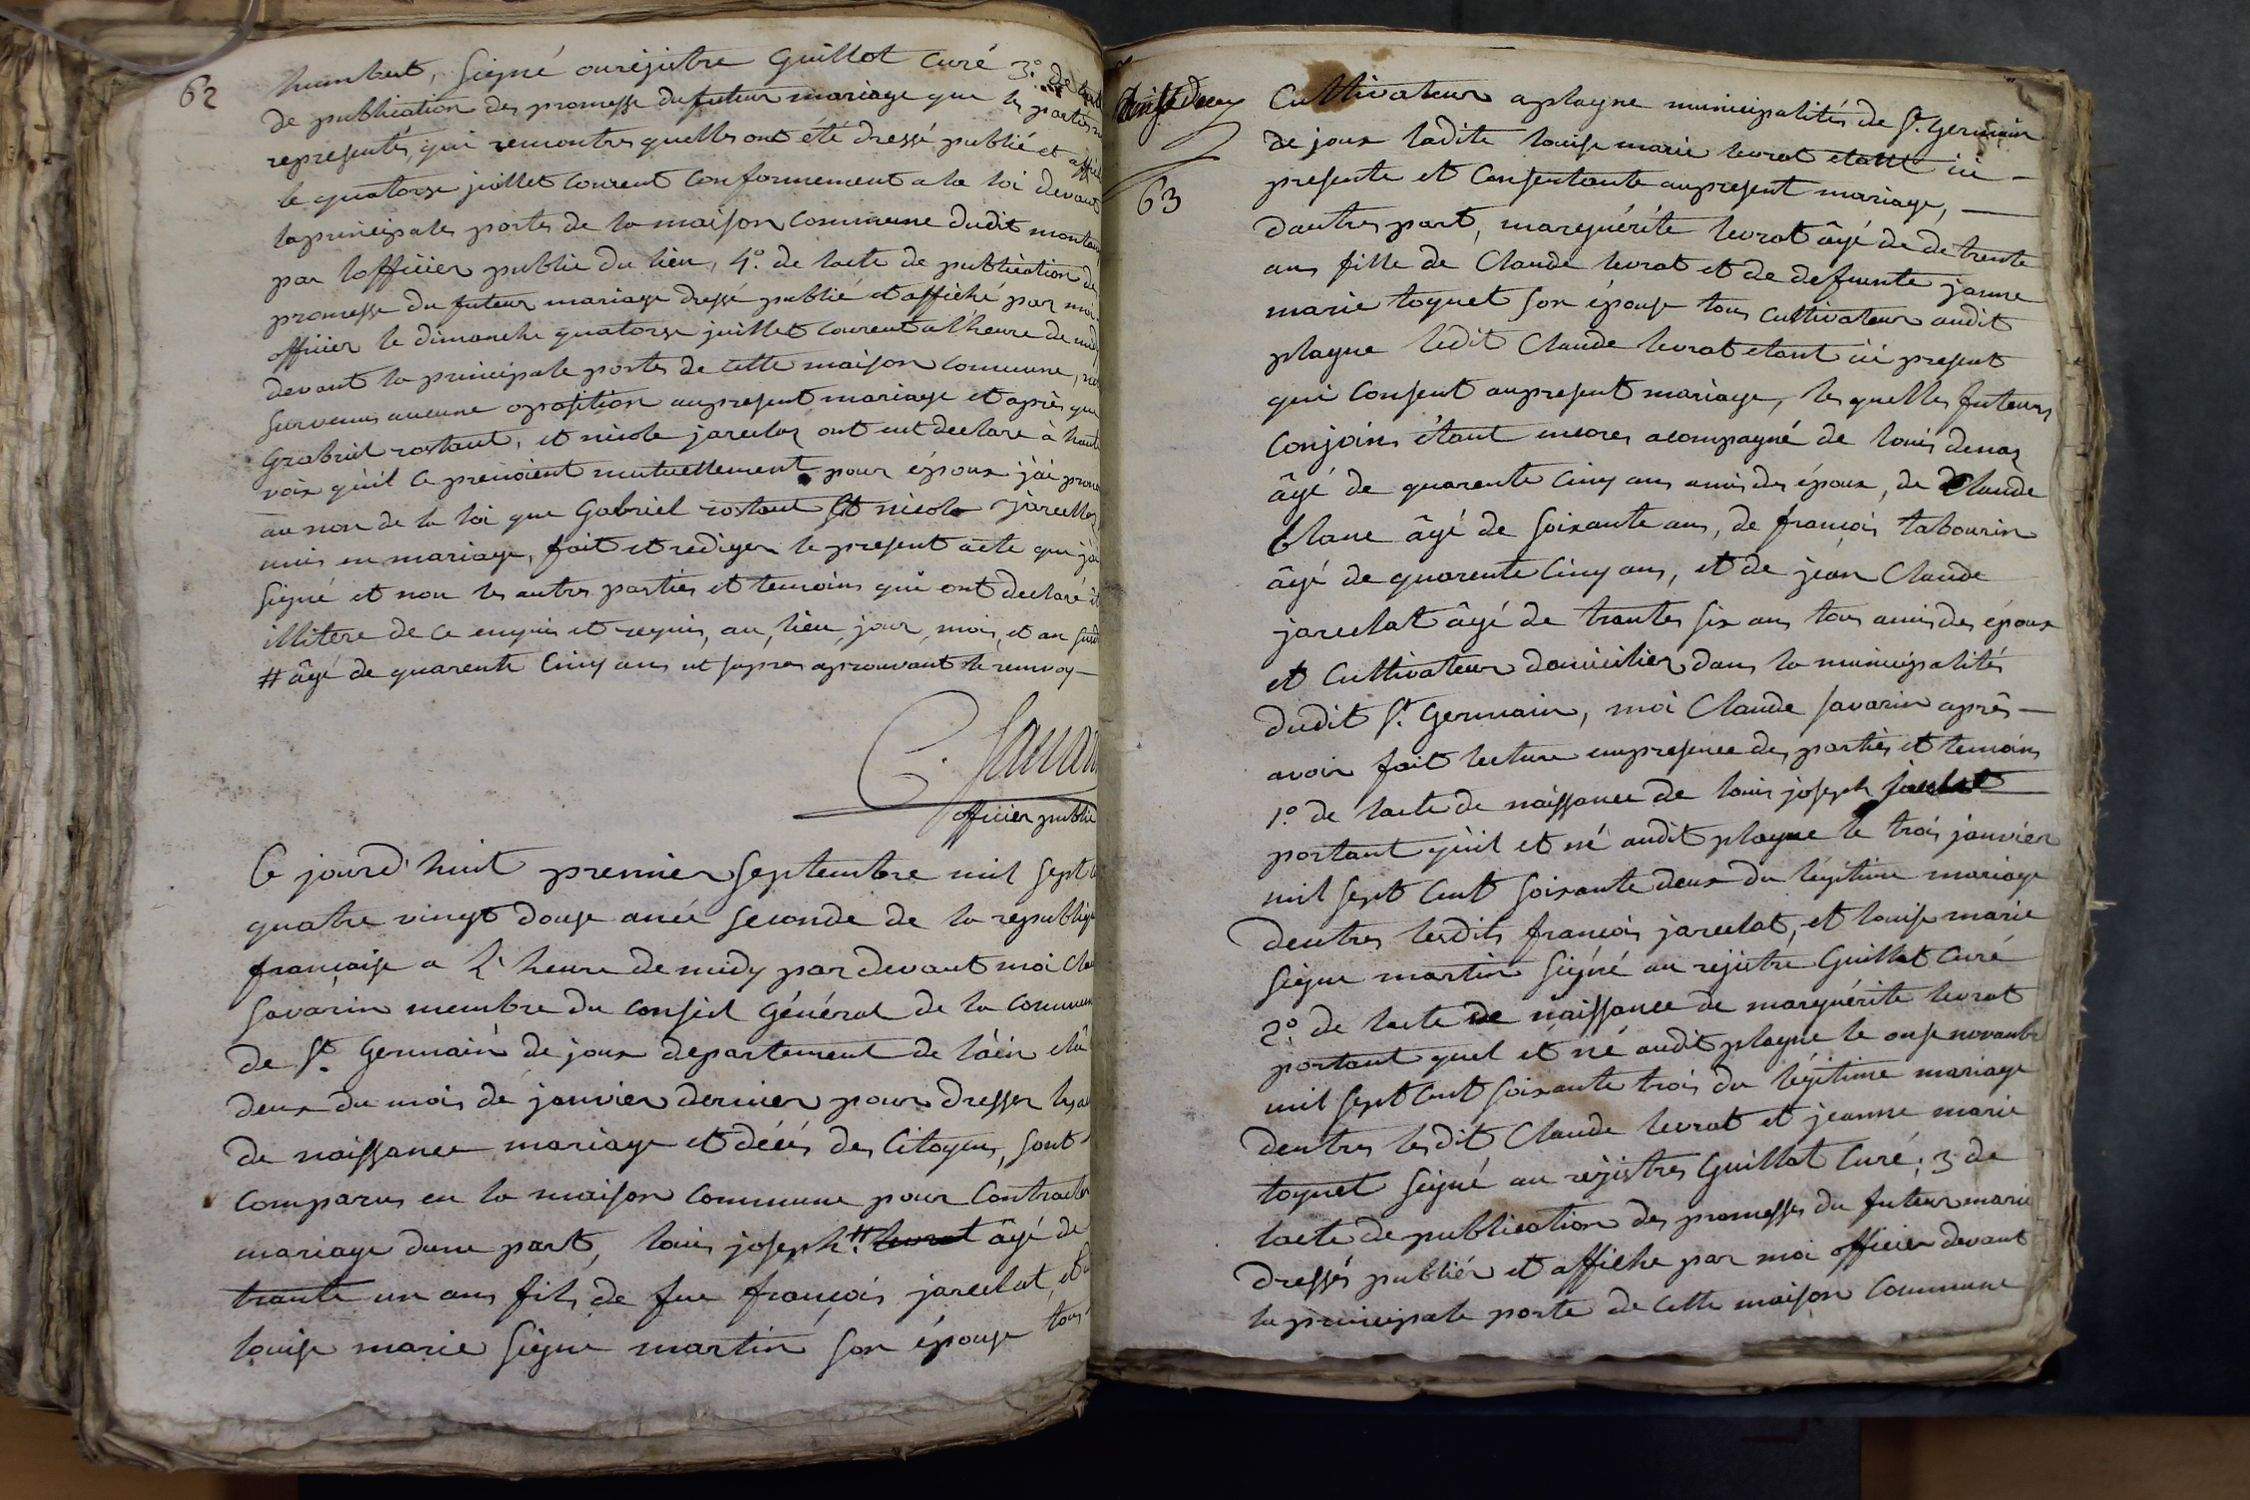 62
humbert, signé auréjistre Guillot Curé 3.°
de publication des promesse du futeur mariage que les parties
representés, qui remontres quelles ont été dressé publié et
le quatorze juillet Courent Conformement a la loi devant
laprincipale portes de la maison Commune dudit
par lofficier public du lieu, 4.° de lacte de publication de
promesse du futeur mariage dressé publié et affiché par moi
officier le dimanche quatorze juillet Courent a lheure de
devant la principale portes de cette maison Commune,
survenus aucune oposition aupresent mariage et après que
Grabriel rostant, et nicole jarcelot ont eut declare à haute
voix quil Ce prenoient mutuellement pour époux j'ai
au non de la loi que Gabriel rostant Et nicole jarcellot
unis en mariage, fait et rediger le present acte que jai
signé et non les autres parties et temoins qui ont declaré
illitere de ce enquis et requis, au, lieu, jour, mois, et an
# âgé de quarente Cinq ans ut supras aprouvant le renvoy —
C. Savarin
officier public
Ce jourd'huit premier septembre mil sept
quatre vingt douze anée seconde de la republique
française a L'heure de midy par devant moi
savarin membre du Conseil Général de la Commune
de St. Germain de joux departement de làin
deux du mois de janvier dernier pour dresser les
de naissance mariage et décés des Citoyens, sont
Comparus en la maison Commune pour Contracter
mariage dune part, louis joseph # levrat âgé de
trante un ans fils de feu françois jarcelat, et
louise marie signe martin son épouse tous
63
Cultivateur a plagne municipalités de St. Germain
de joux ladite louise marie levrat etant ici —
presente et Consentante aupresent mariage, —
dautres part, marguérite levrat âgé de de trente
ans fille de Claude levrat et de defunte janne
marie toquet son épouse tous Cultivateur audit
plagne ledit Claude levrat etant ici present
qui Consent aupresent mariage, les quelles futeurs
Conjoins étant encores acompagné de louis
âgé de quarente Cinq ans amis des époux, de Claude
blanc âgé de soixante ans, de françois tabourin
âgé de quarente Cinq ans, et de jean Claude
jarcelat âgé de trantes six ans tous amis des époux
et Cultivateur domicilier dans la municipalités
dudit St. Germain, moi Claude savarin après —
avoir fait lecture empresence des parties et temoins
1.° de lacte de naissance de louis joseph jarcelat
portant qùil et né audit plagne le trois janvier
mil sept Cent soixante deux du légitime mariage
dentres lesdits françois jarcelat, et louise marie
signe martin signé au rejistre Guillot Curé
2.° de lacte de naissance de marguérite levrat
portant quel et né audit plagne le onze novambre
mil sept Cent soixante trois du légitime mariage
dentres lesdit Claude levrat et jeanne marie
toquet signé au réjistres Guillot Curé; 3 de
lacte de publication des promesses du futeur marie
dressés publiér et affiche par moi officier devant
la principale porte de cette maison Commune